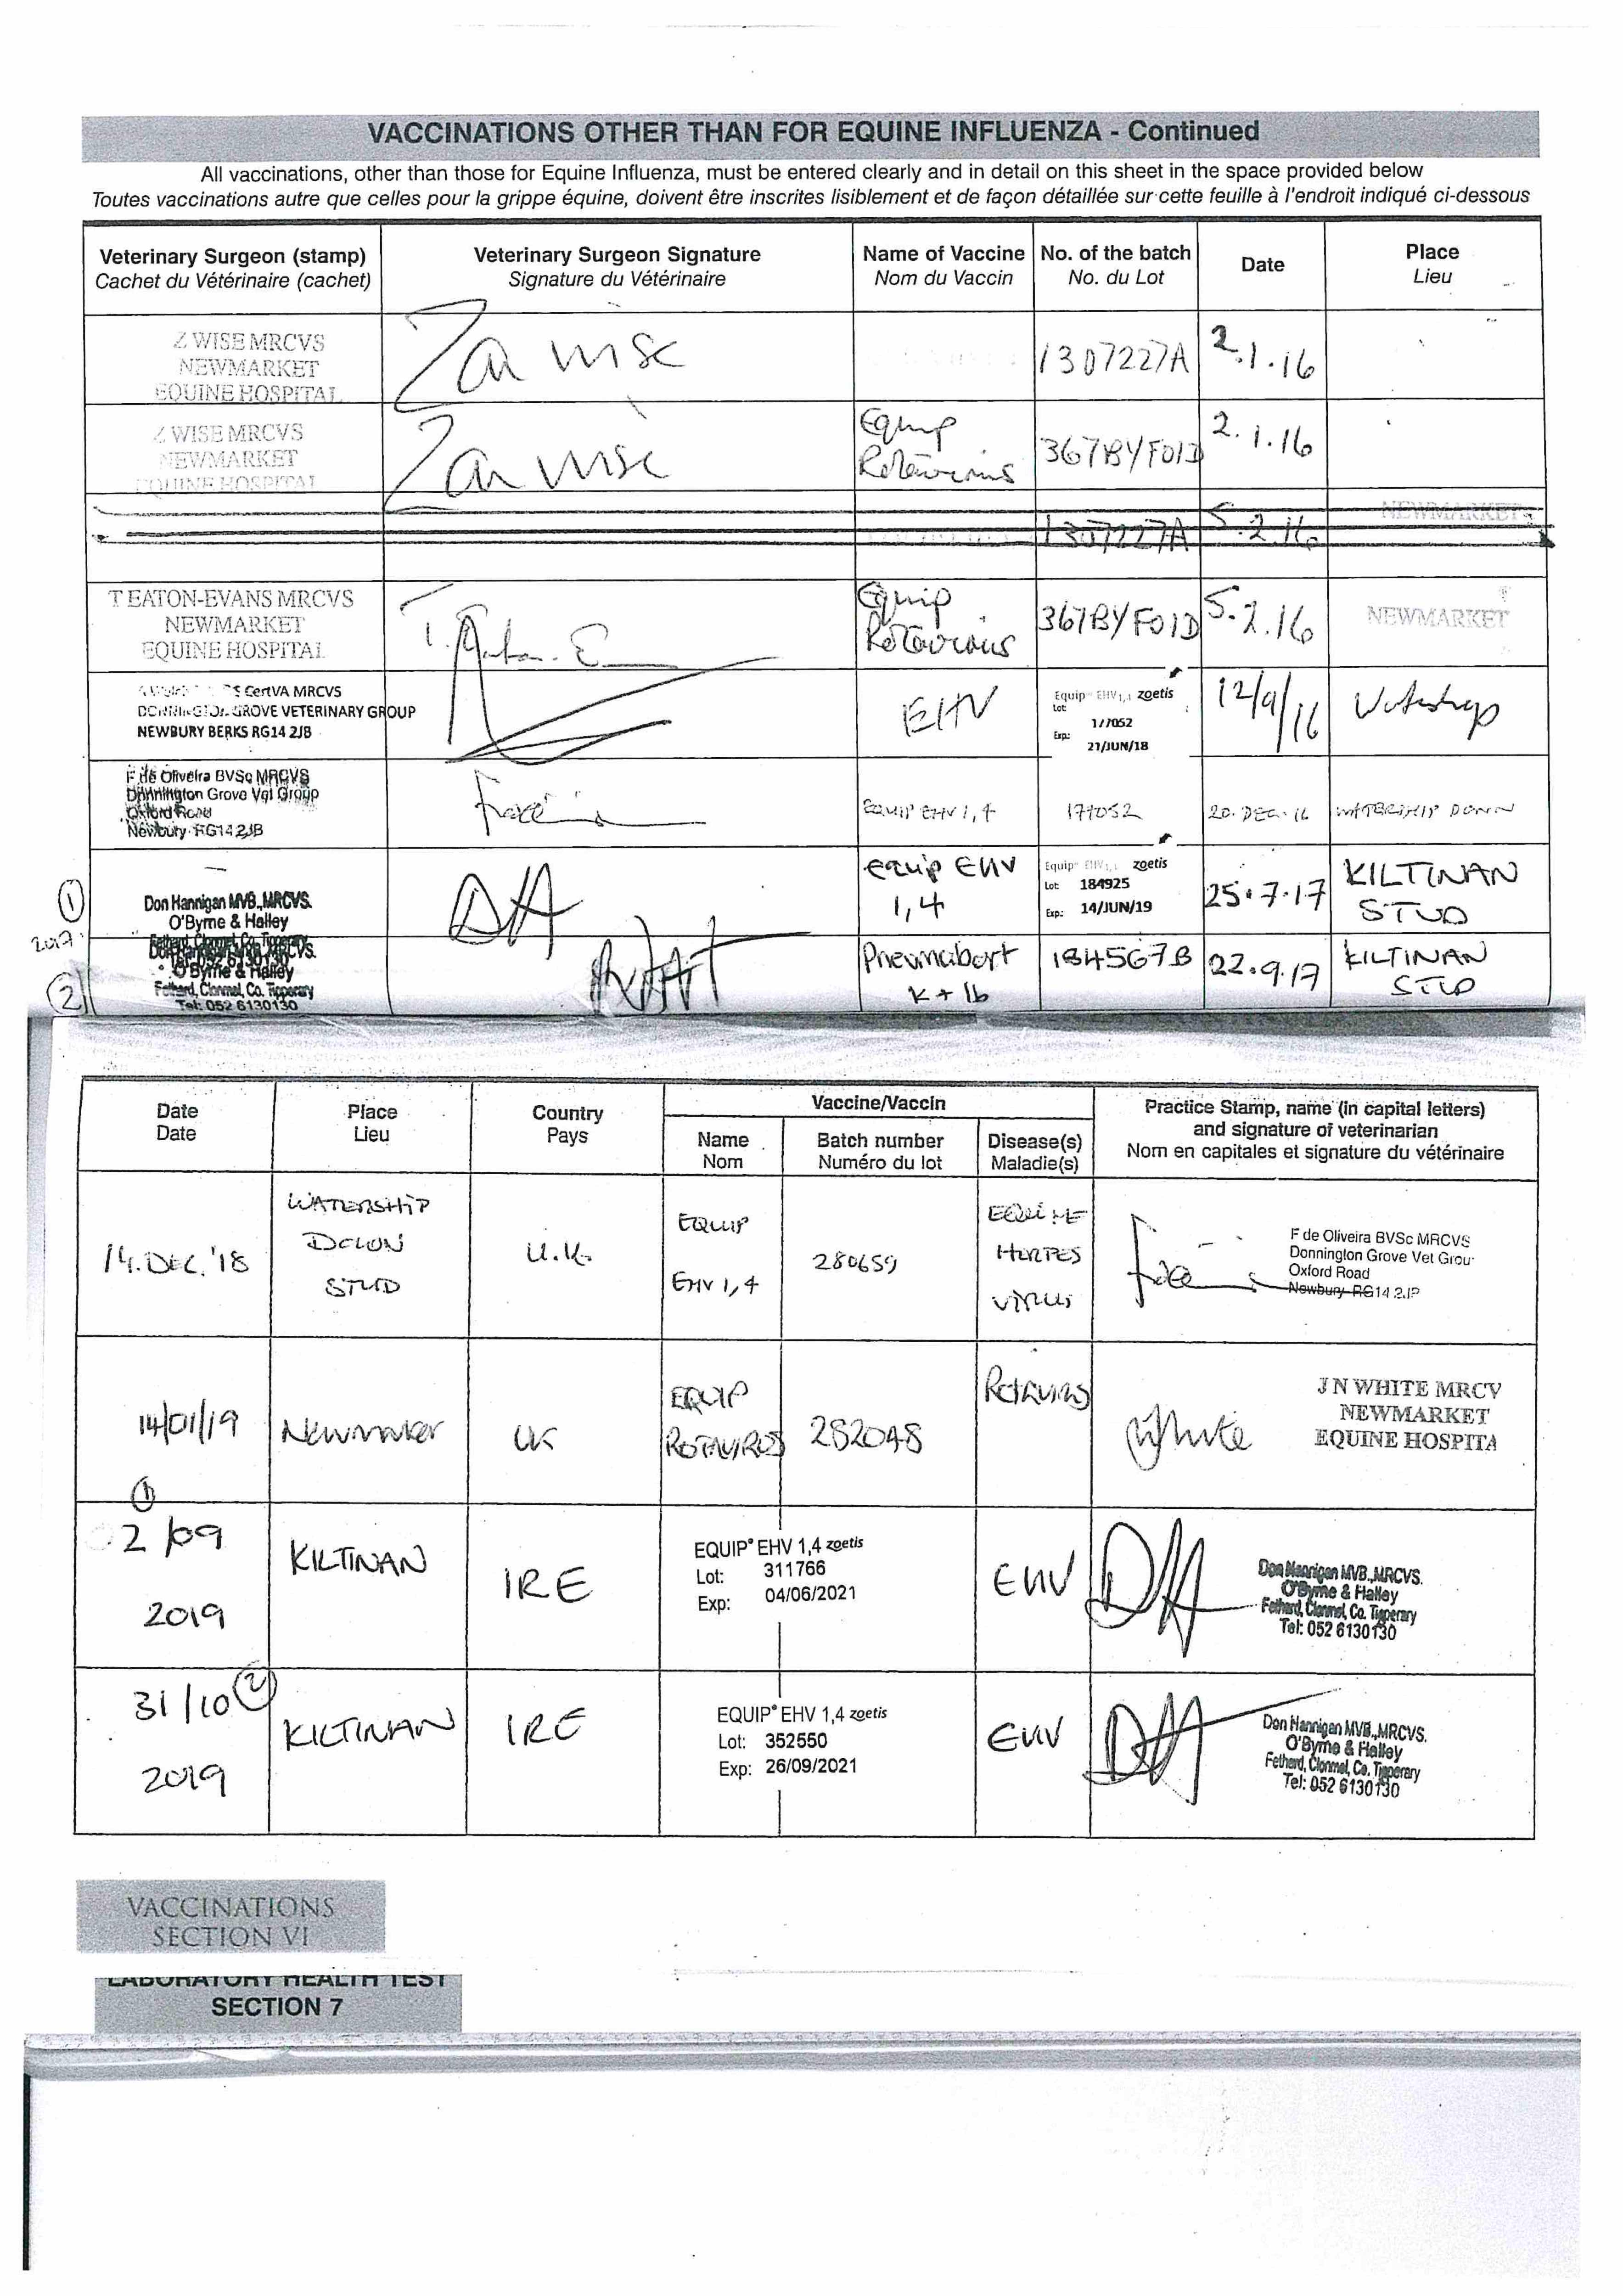 VACCINATIONS OTHER THAN FOR EQUINE INFLUENZA - Continued
All vaccinations, other than those for Equine Influenza, must be entered clearly and in detail on this sheet in the space provided below
Toutes vaccinations autre que celles pour la grippe équine, doivent être inscrites lisiblement et de façon détaillée sur cette feuille à l'endroit indiqué ci-dessous
Veterinary Surgeon (stamp) Veterinary Surgeon Signature Name of Vaccine No. of the batch Date Place
Cachet du Vétérinaire (cachet) Signature du Vétérinaire Nom du Vaccin No. du Lot Lieu
Z WISE MRCVS
NEWMARKET
EQUINE HOSPITAL
1307227A 2.1.16
Z WISE MRCVS
NEWMARKET
EQUINE HOSPITAL
Equip
Rotavirus
367BYF01D 2.1.16
1307227A 5.2.16 NEWMARKET
T EATON-EVANS MRCVS
NEWMARKET
EQUINE HOSPITAL
Equip
Rotavirus
367BYF01D 5.2.16 NEWMARKET
CertVA MRCVS
DONNINGTON GROVE VETERINARY GROUP
NEWBURY BERKS RG14 2JB
EHV
Equip EHV 1,4 zoetis
Lot:
177052
Exp:
21/JUN/18
12/9/16
F de Oliveira BVSc MRCVS
Donnington Grove Vet Group
Oxford Road
Newbury RG14 2JB
EQUIP EHV 1,4 177052 20. DEC. 16 WATERSHIP DOWN
①
2017
Don Hannigan MVB.,MRCVS.
O'Byrne & Halley
Fethard, Clonmel, Co. Tipperary
DH
equip EHV
1,4
Equip EHV 1,4 zoetis
Lot: 184925
Exp: 14/JUN/19
25.7.17
KILTINAN
STUD
②
O'Byrne & Halley
Fethard, Clonmel, Co. Tipperary
Tel: 052 6130130
Pneumabort
K + 1b
184567B 22.9.17
KILTINAN
STUD
Date Place Country Vaccine/Vaccin Practice Stamp, name (in capital letters)
Date Lieu Pays and signature of veterinarian
Name Batch number Disease(s) Nom en capitales et signature du vétérinaire
Nom Numéro du lot Maladie(s)
14. DEC. '18
WATERSHIP
DOWN
STUD
U.K.
EQUIP
EHV 1,4
280659
EQUINE
HERPES
VIRUS
F de Oliveira BVSc MRCVS
Donnington Grove Vet Grou
Oxford Road
Newbury RG14 2JB
14/01/19 Newmarket UK
EQUIP
ROTAVIRUS
282048
Rotavirus
White
J N WHITE MRCV
NEWMARKET
EQUINE HOSPITA
①
2/09
2019
KILTINAN
IRE
EQUIP® EHV 1,4 zoetis
Lot: 311766
Exp: 04/06/2021
EHV
DH
Don Hannigan MVB.,MRCVS.
O'Byrne & Halley
Fethard, Clonmel, Co. Tipperary
Tel: 052 6130130
31/10 ②
2019
KILTINAN
IRE
EQUIP® EHV 1,4 zoetis
Lot: 352550
Exp: 26/09/2021
EHV
DH
Don Hannigan MVB.,MRCVS.
O'Byrne & Halley
Fethard, Clonmel, Co. Tipperary
Tel: 052 6130130
VACCINATIONS
SECTION VI
LABORATORY HEALTH TEST
SECTION 7